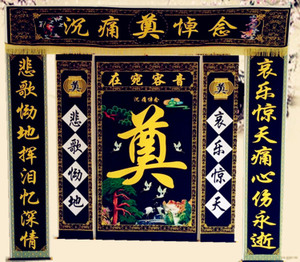 沉痛奠悼念
哀乐惊天痛心伤永逝
悲歌恸地挥泪忆深情
奠
哀乐惊天
奠
悲歌恸地
音容宛在
沉痛悼念
奠